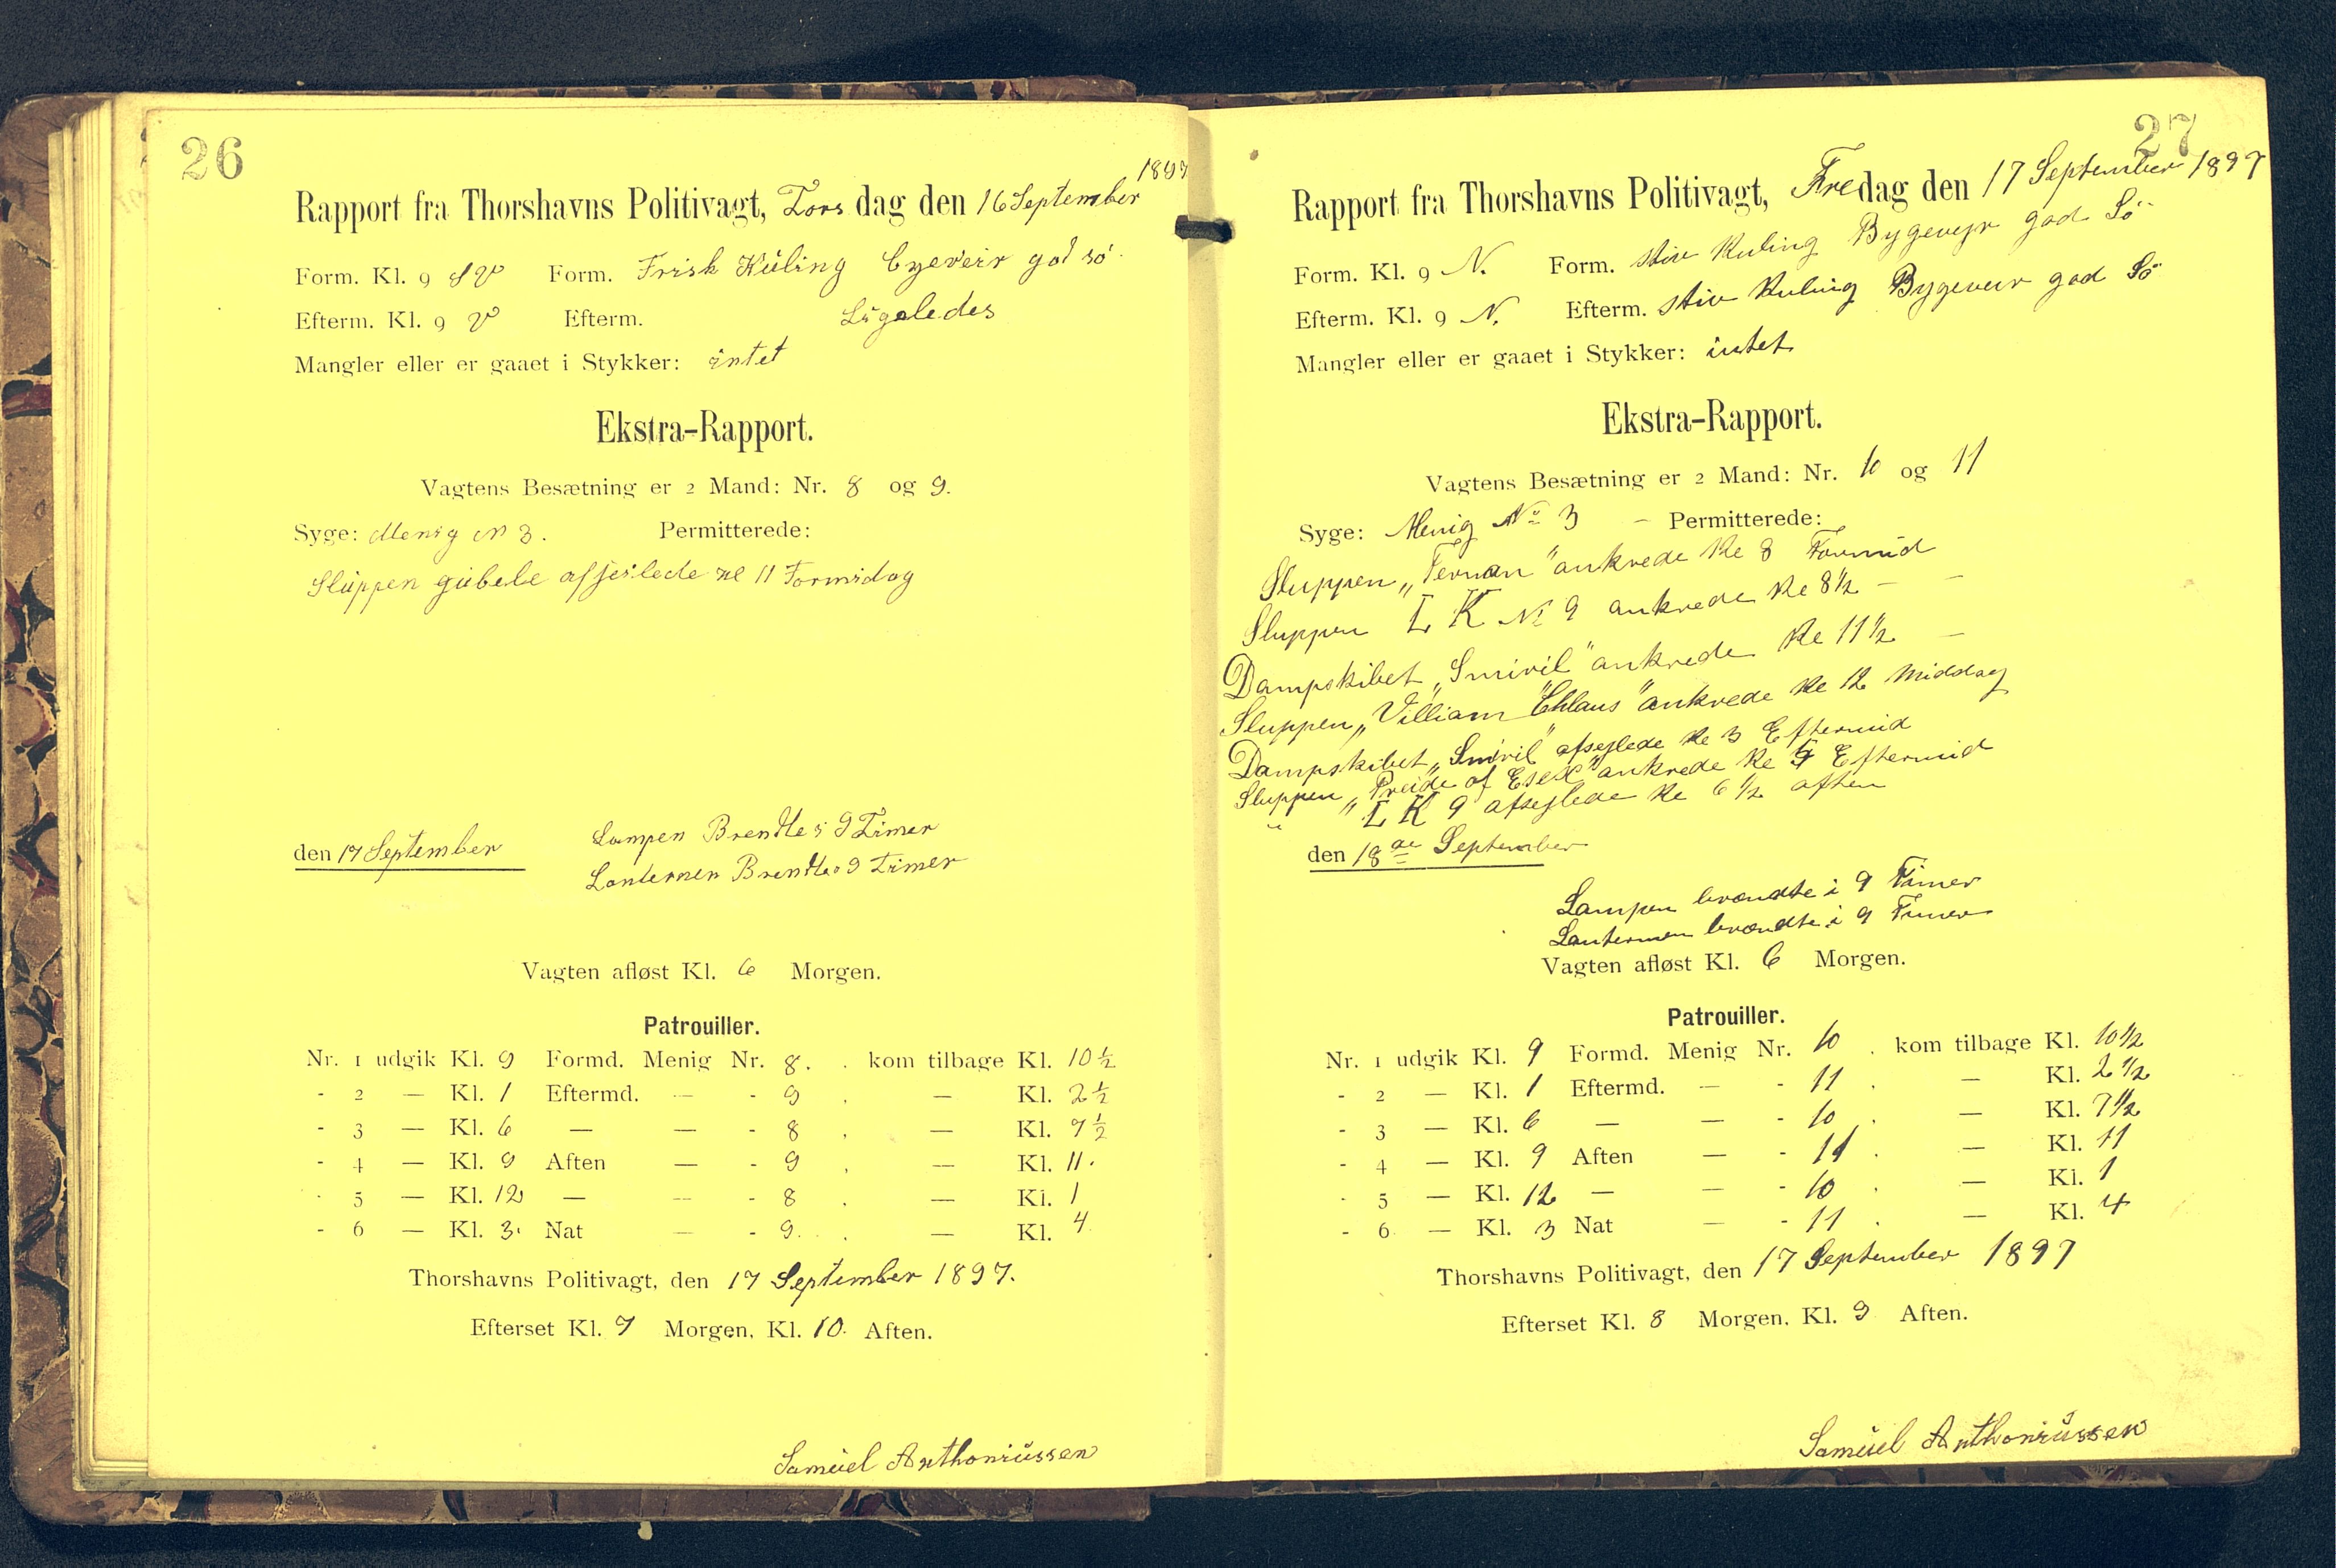 26
1897
Rapport fra Thorshavns Politivagt, Torsdag den 16 September
Form. Kl. 9 SV Form. Frisk Kúling Byeveir god só
Efterm. Kl. 9 V Efterm. Ligeledes
Mangler eller er gaaet i Stykker: intet
Ekstra-Rapport.
Vagtens Besætning er 2 Mand: Nr. 8 og 9.
Syge: Menig N 3. Permitterede:
Slúppen afseilede Kl 11 Formidag
den 17 September
Lampen Brendte i 9 Timer
Lanternen Brendte 9 Timer
Vagten afløst Kl. 6 Morgen.
Patrouiller.
Nr. 1 udgik Kl. 9 Formd. Menig Nr. 8. . kom tilbage Kl. 10 ½
- 2 — Kl. 1 Eftermd. — - 9 . — Kl. 2 ½
- 3 — Kl. 6 — — - 8 . — Kl. 7 ½
- 4 — Kl. 9 Aften — - 9 . — Kl. 11.
- 5 — Kl. 12 — — - 8 . — Kl. 1
- 6 — Kl. 3. Nat — - 9. . — Kl. 4
Thorshavns Politivagt, den 17 September 1897.
Efterset Kl. 7 Morgen, Kl. 10. Aften.
Samúel Anthoniússen
27
Rapport fra Thorshavns Politivagt, Fredag den 17 September 1897
Form. Kl. 9 N. Form. stiv Kuling Bygevejr god Sö
Efterm. Kl. 9 N. Efterm. stiv Kuling Bygeveir god Sö
Mangler eller er gaaet i Stykker: intet
Ekstra-Rapport.
Vagtens Besætning er 2 Mand: Nr. 10 og 11
Syge: Menig No 3 - Permitterede:
Sluppen „Ternan" ankrede Kl 8 Formid
Sluppen L K No 9 ankrede Kl 8½ — —
Dampskibet „Smiril" ankrede Kl 11½ —
Sluppen „Villiam " ankrede Kl 12 Middag
Dampskibet „Smiril" afsejlede Kl 3 Eftermid
Sluppen „Preide of Esex" ankrede Kl Eftermid
" " L K 9 afsejlede Kl 6 ½ aften
den 18de September
Lampen brændte i 9 Timer
Lanternen brændte i 9 Timer
Vagten afløst Kl. 6 Morgen.
Patrouiller.
Nr. 1 udgik Kl. 9 Formd. Menig Nr. 10 . kom tilbage Kl. 10½
- 2 — Kl. 1 Eftermd. — - 11 . — Kl. 2 ½
- 3 — Kl. 6 — — - 10 . — Kl. 7½
- 4 — Kl. 9 Aften — - 11 . — Kl. 11
- 5 — Kl. 12 — — - 10 . — Kl. 1
- 6 — Kl. 3 Nat — - 11 . — Kl. 4
Thorshavns Politivagt, den 17 September 1897
Efterset Kl. 8 Morgen, Kl. 9 Aften.
Samúel Anthoniússen